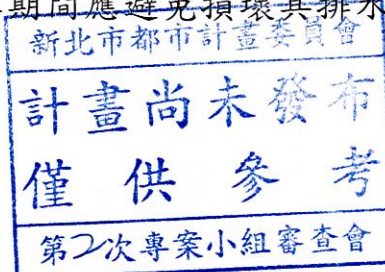 期間應避免損壞其排水
新北市都市計畫委員會
計畫尚未發布
僅供參考
第2次專案小組審查會